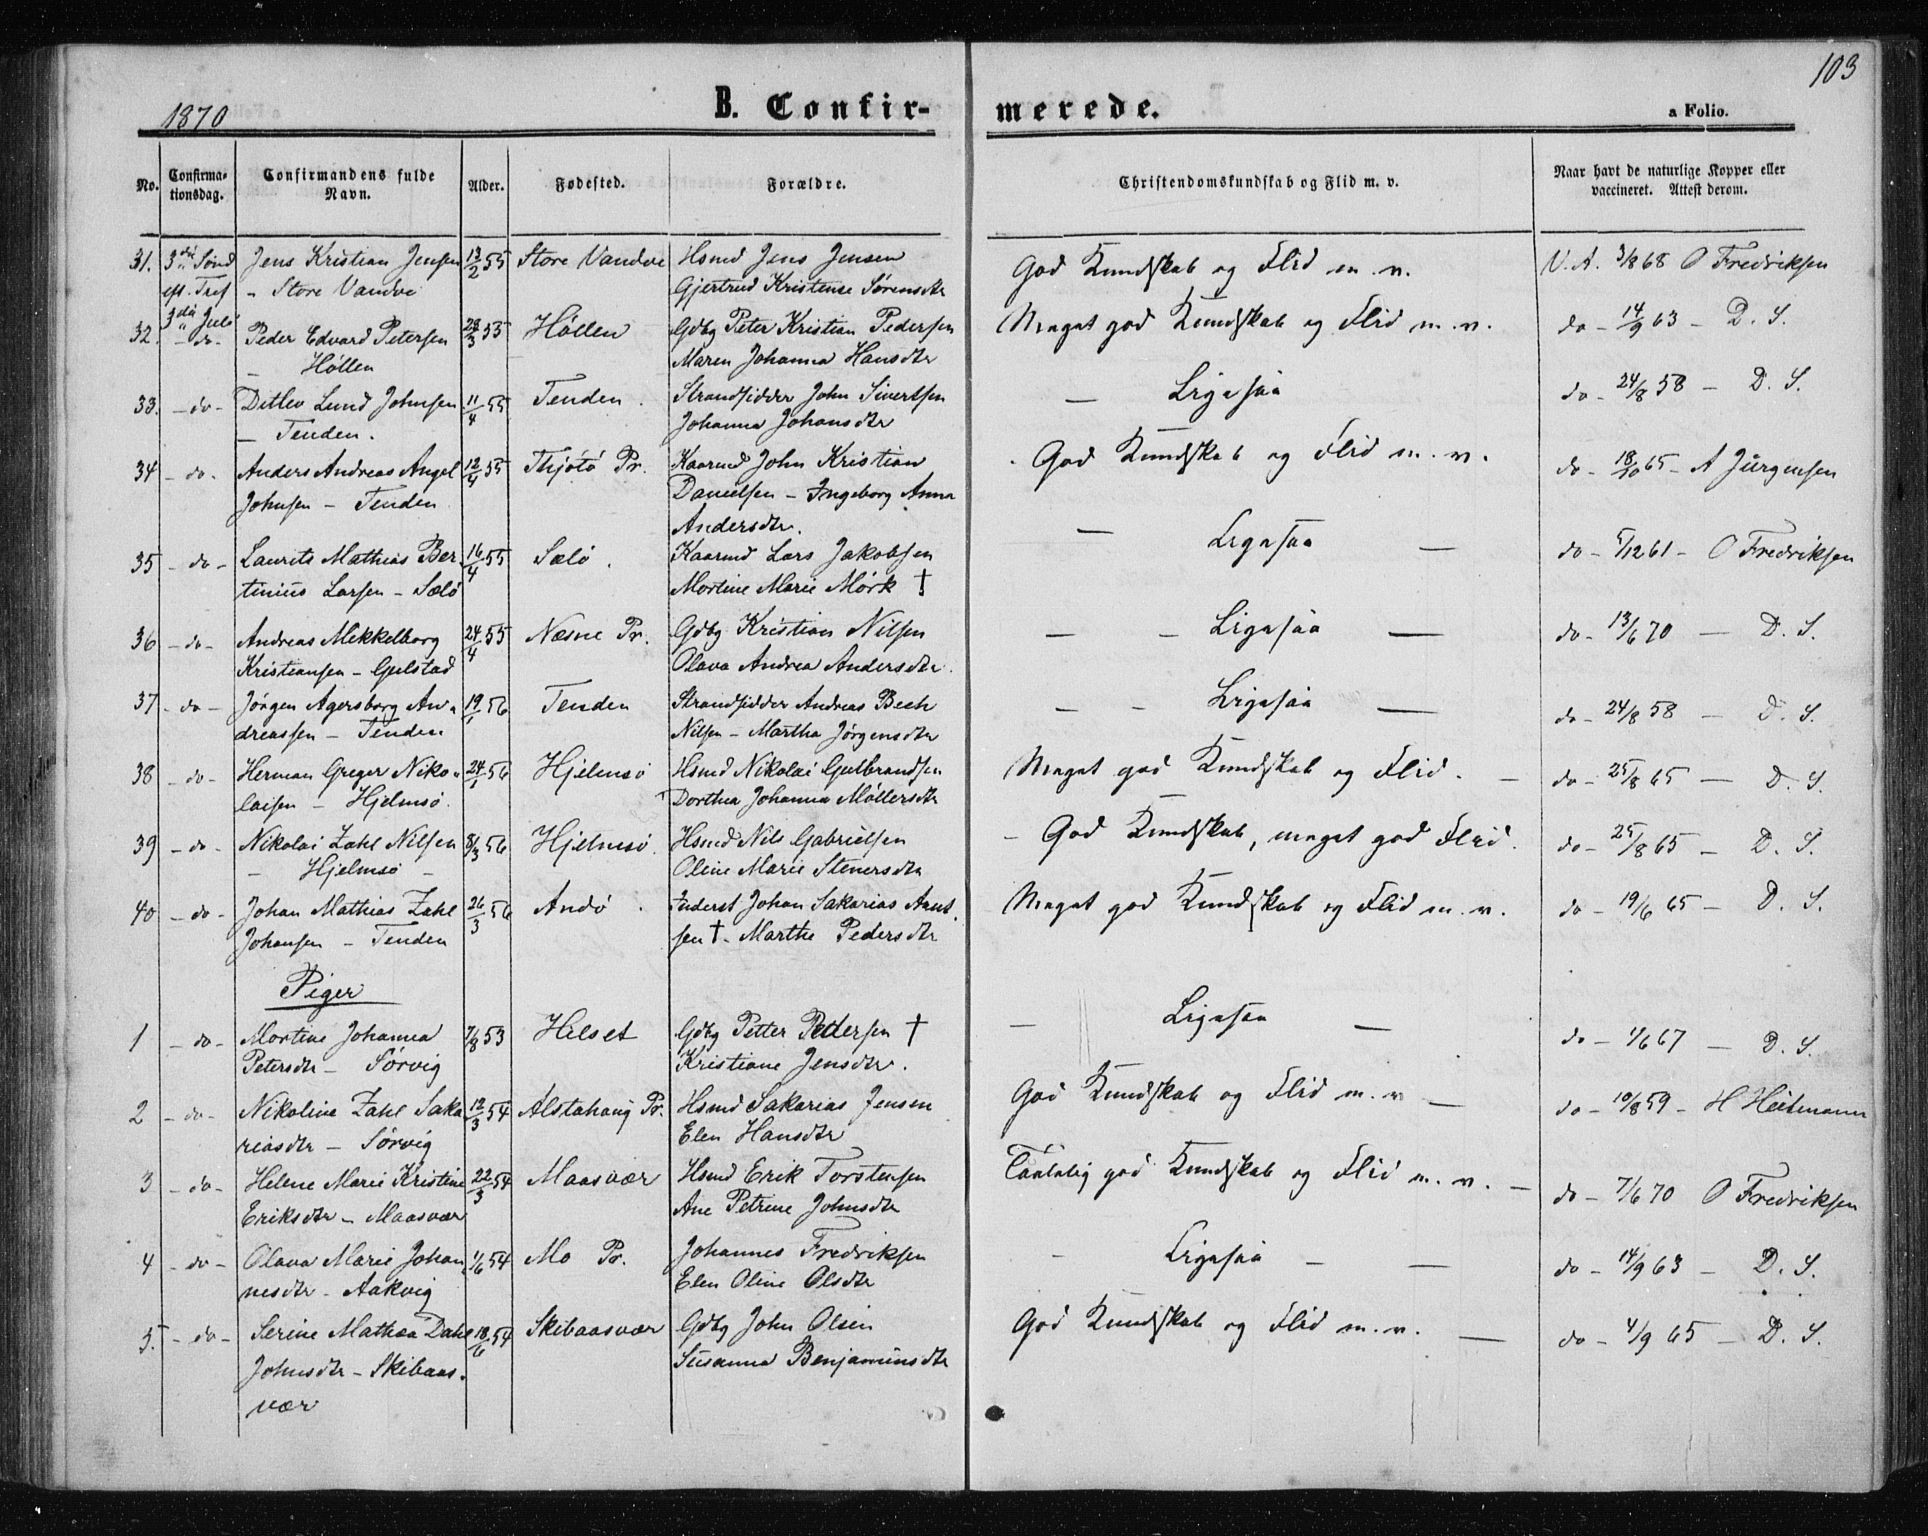 103
1870 B. Confirmerede. a Folio.
No. Confirmationsdag. Confirmandens fulde Navn. Alder. Fødested. Forældre. Christendomskundskab og Flid m. v. Naar havt de naturlige Kopper eller vaccineret. Attest derom.
31. 3die Sönd Jens Kristian Jensen 13/2 55 Store Vandve Hsmd Jens Jensen God Kundskab og Flid m. v. V. A. 3/8 68 O Fredriksen
eft. Tref - Store Vandve Gjertrud Kristense Sørensdtr
3die Juli
32. - do - Peder Edvard Petersen 28/3 55 Høllen Gdbg Peter Kristian Pedersen Meget god Kundskab og Flid m. v. do - 14/9 63 - D. S.
- Høllen Maren Johanna Hansdtr
33. - do - Ditlev Lund Johnsen 11/4 55 Tenden. Strandsidder John Sivertsen - Ligesaa do - 24/8 58 - D. S.
- Tenden. Johanna Johansdtr
34 - do - Anders Andreas Angel 12/4 55 Thjøtø Pr. Kaarmd John Kristian God Kundskab og Flid m. v. do - 18/10 65 - A Jürgensen
Johnsen - Tenden Danielsen - Ingeborg Anna
Andersdtr.
35 - do - Laurits Mathias Ber- 16/4 55 Sælø. Kaarmd Lars Jakobsen - Ligesaa - do - 5/12 61 - O Fredriksen
tinius Larsen - Sælø Martine Marie Mørk †
36 - do - Andreas Mekkelborg 24/4 55 Næsne Pr. Gdbg Kristian Nilsen - - Ligesaa - do - 13/6 70 - D. S.
Kristiansen - Gulstad Olava Andrea Andersdtr.
37 - do - Jørgen Agersborg An- 19/1 56 Tenden Strandsidder Andreas Bech - - Ligesaa - do - 24/8 58 - D. S.
dreassen - Tenden Nilsen - Martha Jørgensdtr
38 - do - Herman Greger Niko- 24/1 56 Hjelmsø Hsmd Nikolai Gulbrandsen Meget god Kundskab og Flid. - do - 25/8 65 - D. S.
laisen - Hjelmsø. Dorthea Johanna Møllersdtr
39 - do - Nikolai Zahl Nilsen 8/3 56 Hjelmsø. Hsmd Nils Gabrielsen - God Kundskab, meget god Flid. do - 25/8 65 - D. S.
- Hjelmsø - Oline Marie Stenersdtr
40 - do - Johan Mathias Zahl 26/3 56 Andø. Inderst Johan Sakarias Arnt- Meget god Kundskab og Flid m. v. do - 19/6 65 - D. S.
Johansen - Tenden sen † - Marthe Pedersdtr
Piger
1 - do - Martine Johanna 7/8 53 Hilset Gdbg Petter Pettersen † - Ligesaa - do - 1/6 67 - D. S.
Petersdtr - Sørvig Kristiane Jensdtr.
2 - do - Nikoline Zahl Saka- 12/3 54 Alstahaug Pr. Hsmd Sakarias Jensen God Kundskab og Flid m. v - do - 10/8 59 - H Heitmann
riasdtr - Sørvig Elen Hansdtr
3 - do - Helene Marie Kristine 22/3 54 Maasvær Hsmd Erik Torstensen Taalelig god Kundskab og Flid m. v. - do - 7/6 70 O Fredriksen
Eriksdtr - Maasvær Ane Petrine Johnsdtr
4 - do - Olava Marie Johan- 1/6 54 Mo Pr. Johannes Fredriksen - Ligesaa - - do - 14/9 63 - D. S.
nesdtr - Aakvig Elen Oline Olsdtr
5. - do - Serine Mathea Dahl 18/6 54 Skibaasvær Gdbg John Olsen God Kundskab og Flid m. v. - do - 4/9 65 - D. S.
Johnsdtr - Skibaas- Susanna Benjaminsdtr
vær